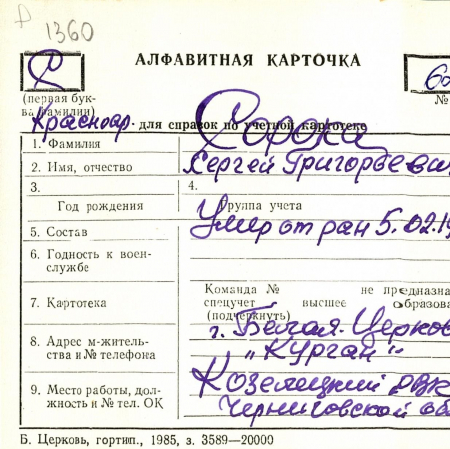 1360
АЛФАВИТНАЯ КАРТОЧКА
(первая бук-
ва фамилии)
№
Краснояр. для справок по учетной картотеке
Сорока
1. Фамилия
2. Имя, отчество Сергей Григорьевич
3. 4.
Год рождения Группа учета
5. Состав Умер от ран 5.02.19
6. Годность к воен-
службе
Команда № не предназна
7. Картотека спецучет высшее образова
(подчеркнуть)
8. Адрес м-житель-
ства и № телефона
г. Белая-Церков
"Курган"
9. Место работы, дол-
жность и № тел. ОК
Козелецкий РВК
Черниговской об
Б. Церковь, гортип., 1985, з. 3589—20000